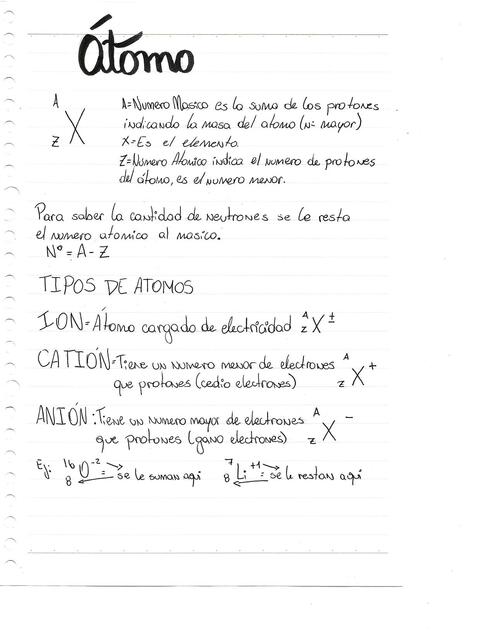 Átomo
A
Z X
A=Numero Masico es la suma de los protones
indicando la masa del atomo (Nº mayor)
X=Es el elemento.
Z=Número Atomico indica el numero de protones
del átomo, es el numero menor.
Para saber la cantidad de neutrones se le resta
el numero atomico al masico.
Nº = A - Z
TIPOS DE ATOMOS
ION=Átomo cargado de electricidad A Z X ±
CATIÓN=Tiene un numero menor de electrones A
que protones (cedio electrones) Z X +
ANIÓN: Tiene un numero mayor de electrones A
que protones (gano electrones) Z X -
Ej: 16 8 O -2 = se le suman aqi 7 8 Li +1 = se le restan aqi